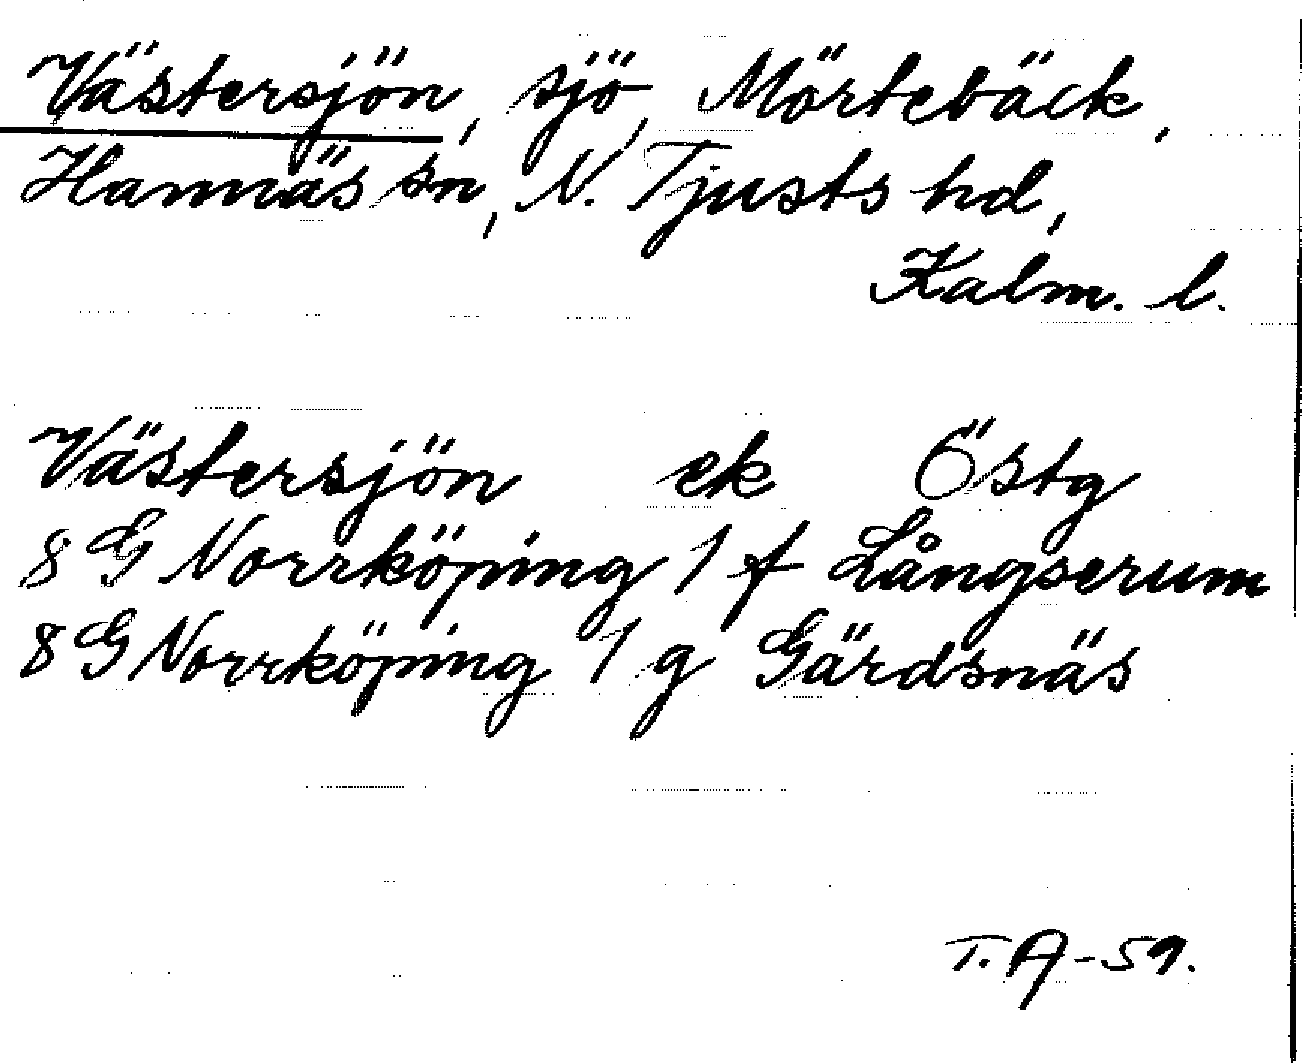 Västersjön, sjö, Mörtebäck,
Hannäs sn, N. Tjusts hd,
Kalm. l.
Västersjön ek Östg
8 G Norrköping 1 f Långserum
8 G Norrköping 1 g Gärdsnäs
T. A-59.